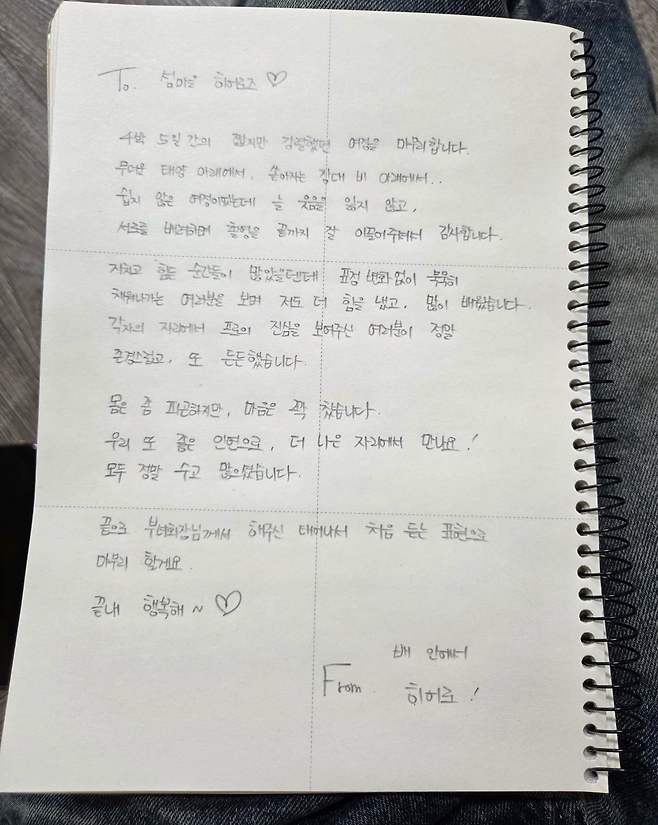 To. 섬마을 히어로즈 ♡
4박 5일 간의 짧지만 강렬했던 여정을 마무리합니다.
무더운 태양 아래에서, 쏟아지는 장대 비 아래에서..
쉽지 않은 여정이었는데 늘 웃음을 잃지 않고,
서로를 배려하며 촬영을 끝까지 잘 이끌어주셔서 감사합니다.
지치고 힘든 순간들이 많았을텐데 표정 변화 없이 묵묵히
채워나가는 여러분을 보며 저도 더 힘을 냈고, 많이 배웠습니다.
각자의 자리에서 프로의 진심을 보여주신 여러분이 정말
존경스럽고, 또 든든했습니다.
몸은 좀 피곤하지만, 마음은 꽉 찼습니다.
우리 또 좋은 인연으로, 더 나은 자리에서 만나요!
모두 정말 수고 많으셨습니다.
끝으로 부녀회장님께서 해주신 태어나서 처음 듣는 표현으로
마무리 할게요.
끝내 행복해~ ♡
배 안에서
From. 히어로!